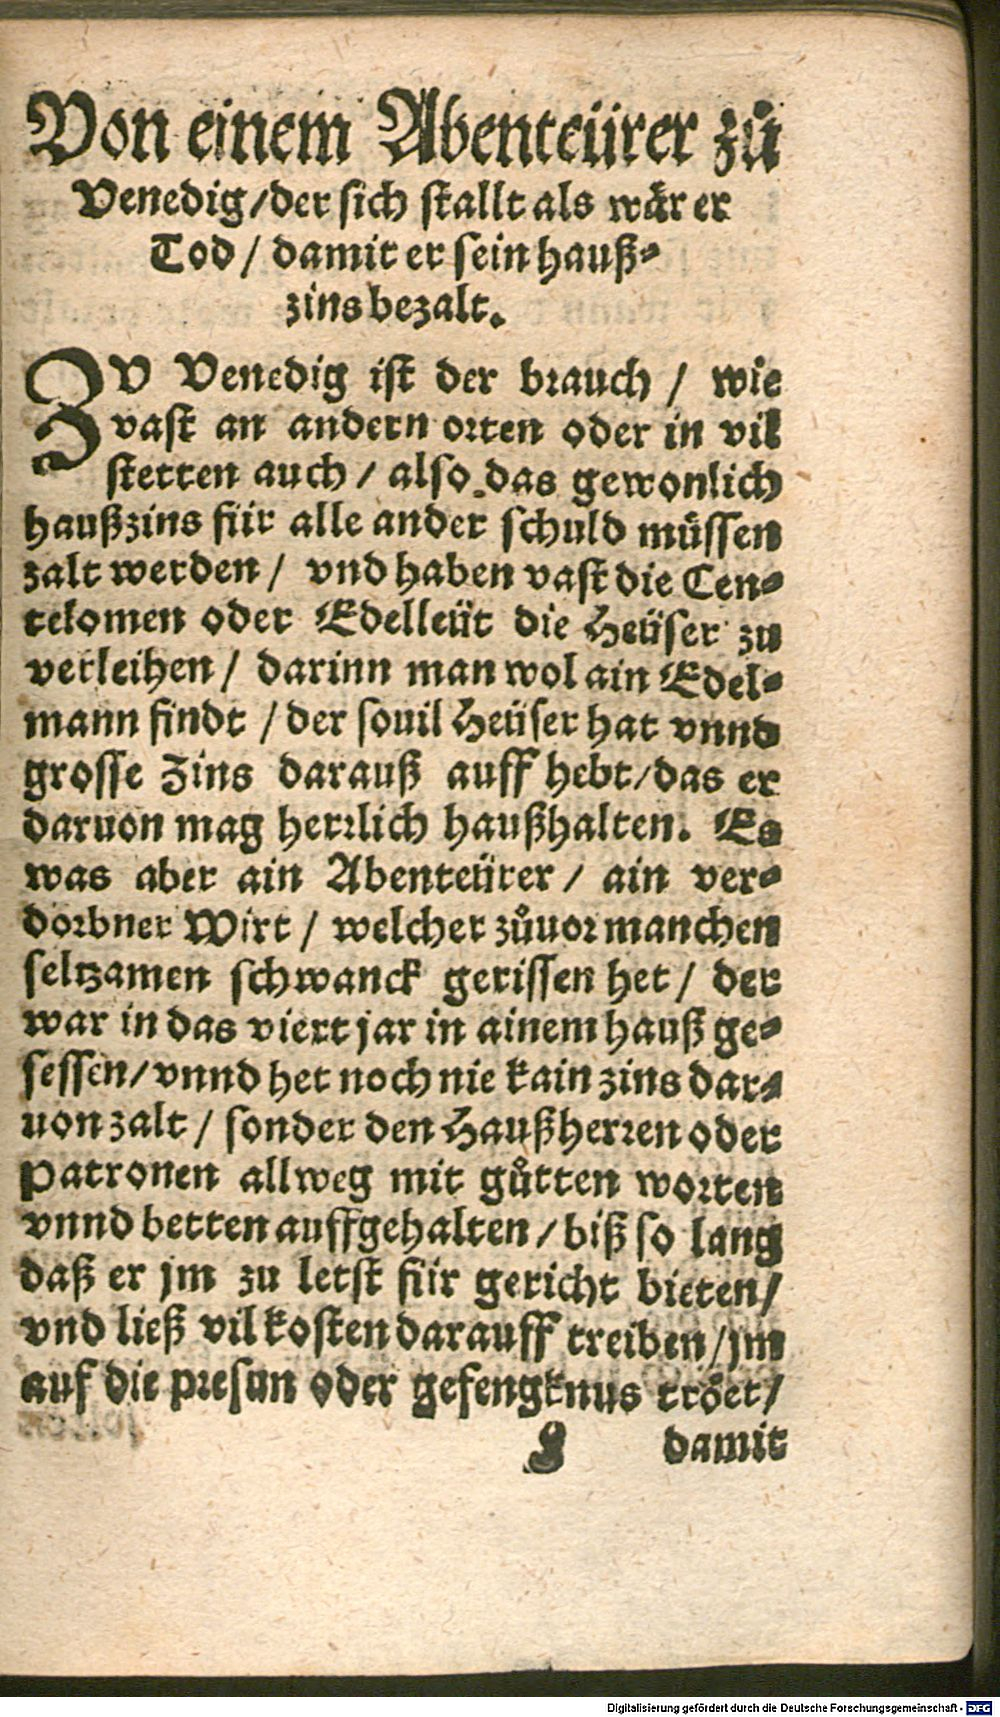 Von einem Abenteürer zů
Venedig / der sich stallt als wär er
Tod / damit er sein hauß⸗
zins bezalt.
ZV Venedig ist der brauch / wie
vast an andern orten oder in vil
stetten auch / also das gewonlich
haußzins für alle ander schuld müssen
zalt werden / vnd haben vast die Cen⸗
telomen oder Edelleüt die Heüser zu
verleihen / darinn man wol ain Edel⸗
mann findt / der souil Heüser hat vnnd
grosse Zins darauß auff hebt / das er
daruon mag herrlich haußhalten. Es
was aber ain Abenteürer / ain ver⸗
dorbner Wirt / welcher zůuor manchen
seltzamen schwanck gerissen het / der
war in das viert jar in ainem hauß ge⸗
sessen / vnnd het noch nie kain zins dar⸗
uon zalt / sonder den Haußherren oder
Patronen allweg mit gůtten worten
vnnd betten auffgehalten / biß so lang
daß er jm zu letst für gericht bieten /
vnd ließ vil kosten darauff treiben / jm
auf die presun oder gefengknus tröet /
damit
Digitalisierung gefördert durch die Deutsche Forschungsgemeinschaft - DFG